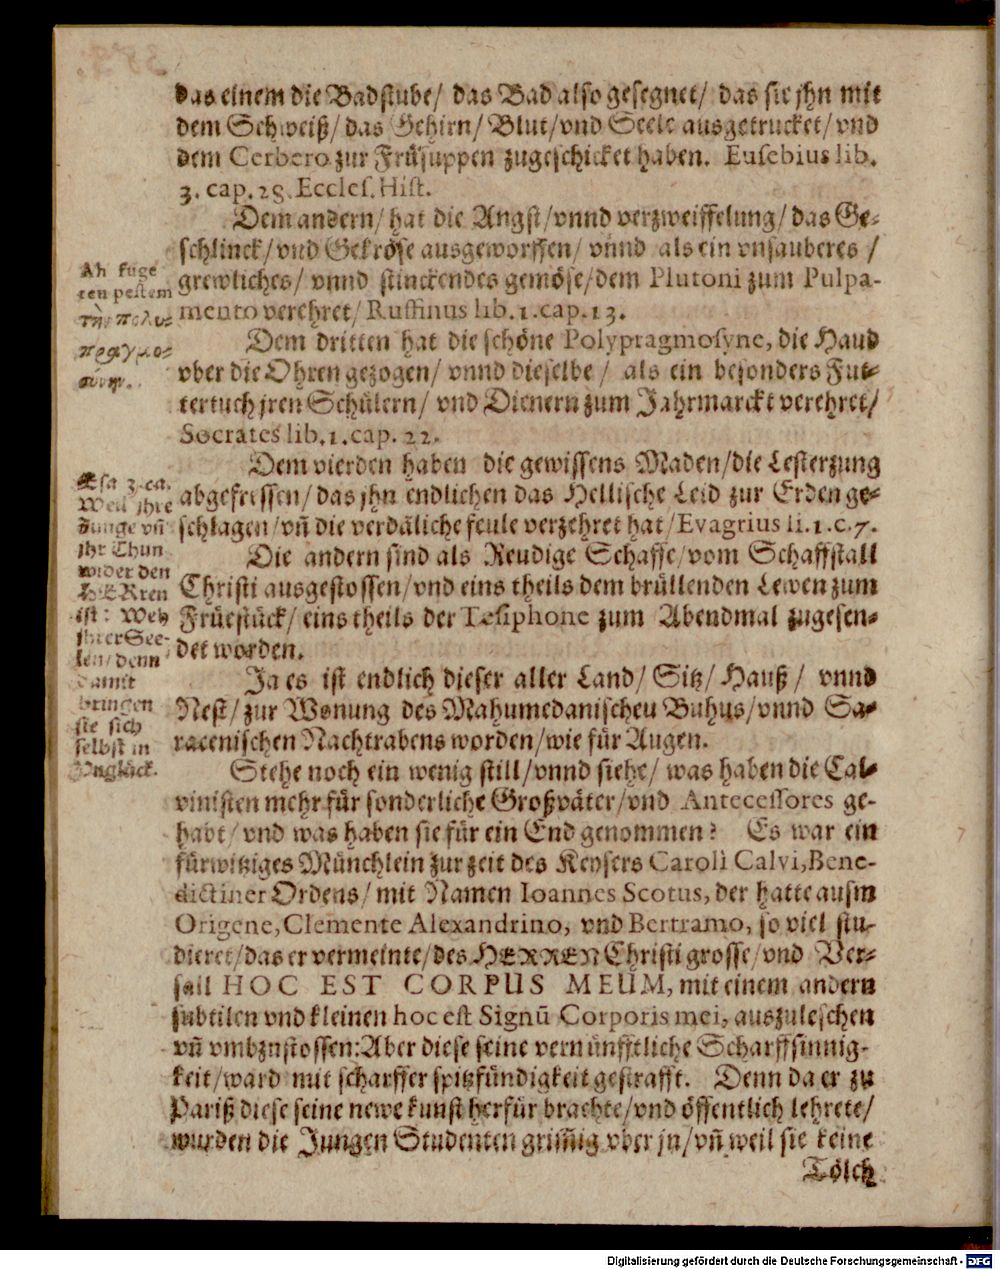 das einem die Badstube/ das Bad also gesegnet/ das sie jhn mit
dem Schweiß/ das Gehirn/ Blut/ vnd Seele ausgetrucket/ vnd
dem Cerbero zur Früsuppen zugeschicket haben. Eusebius lib.
3. cap. 28. Eccles. Hist.
Dem andern/ hat die Angst/ vnnd verzweiffelung/ das Ge-
schlinck/ vnd Gekröse ausgeworffen/ vnnd als ein vnsauberes /
grewliches/ vnnd stinckendes gemöse/ dem Plutoni zum Pulpa-
mento verehret/ Ruffinus lib. 1. cap. 13.
Ah fuge
ten pestem
τὴν πολυ-
πραγμο-
σύνην.
Dem dritten hat die schöne Polypragmosyne, die Haud
vber die Ohren gezogen/ vnnd dieselbe / als ein besonders Fut-
tertuch jren Schülern/ vnd Dienern zum Jahrmarckt verehret/
Socrates lib. 1. cap. 22.
Dem vierden haben die gewissens Maden/ die Lesterzung
abgefressen/ das jhn endlichen das Hellische Leid zur Erden ge-
schlagen/ vñ die verdäliche feule verzehret hat/ Evagrius li. 1. c. 7.
Esa 3. ca.
Weil jhre
Zunge vñ
jhr Thun
wider den
HERren
ist: Weh
jhrer See-
len/ denn
damit
bringen
sie sich
selbst in
Vnglück.
Die andern sind als Reudige Schaffe/ vom Schaffstall
Christi ausgestossen/ vnd eins theils dem brüllenden Lewen zum
Früestück/ eins theils der Tesiphone zum Abendmal zugesen-
det worden.
Ja es ist endlich dieser aller Land/ Sitz/ Hauß / vnnd
Nest/ zur Wonung des Mahumedanischeu Buhus/ vnnd Sa-
racenischen Nachtrabens worden/ wie für Augen.
Stehe noch ein wenig still/ vnnd siehe/ was haben die Cal-
vinisten mehr für sonderliche Großväter/ vnd Antecessores ge-
habt/ vnd was haben sie für ein End genommen? Es war ein
fürwitziges Münchlein zur zeit des Keysers Caroli Calvi, Bene-
dictiner Ordens/ mit Namen Ioannes Scotus, der hatte ausm
Origene, Clemente Alexandrino, vnd Bertramo, so viel stu-
dieret/ das er vermeinte/ des HERREN Christi grosse/ vnd Ver-
sall HOC EST CORPUS MEUM, mit einem andern
subtilen vnd kleinen hoc est Signū Corporis mei, auszuleschen
vñ vmbznstossen: Aber diese seine vernünfftliche Scharffsinnig-
keit/ ward mit scharffer spitzfündigkeit gestrafft. Denn da er zu
Pariß diese seine newe kunst herfür brachte/ vnd öffentlich lehrete/
wurden die Jungen Studenten grim̃ig vber jn/ vñ weil sie keine
Tölch
Digitalisierung gefördert durch die Deutsche Forschungsgemeinschaft - DFG